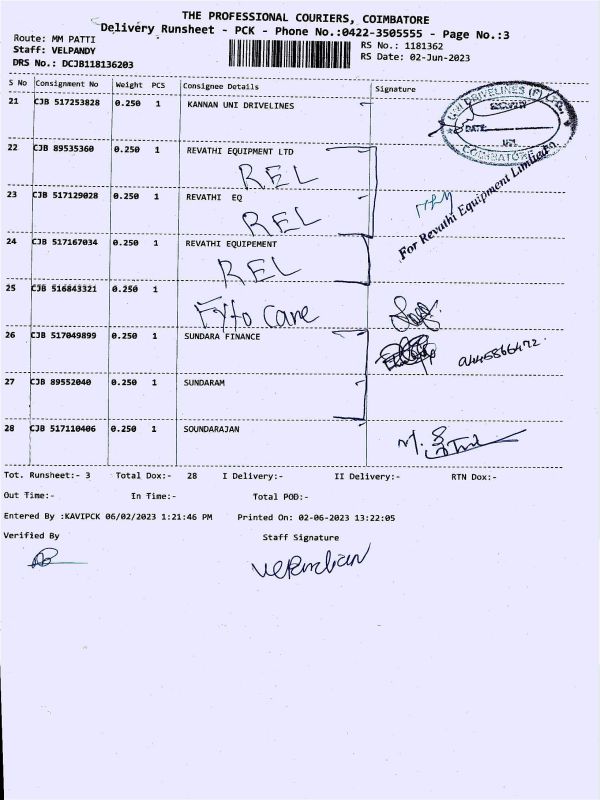 THE PROFESSIONAL COURIERS, COIMBATORE
Delivery Runsheet - PCK - Phone No.:0422-3505555 - Page No.:3
Route: MM PATTI
RS No.: 1181362
Staff: VELPANDY
RS Date: 02-Jun-2023
DRS No.: DCJB118136203
S No Consignment No Weight PCS Consignee Details Signature
21 CJB 517253828 0.250 1 KANNAN UNI DRIVELINES
UNI DRIVELINES (P) LTD.,
DATE
COIMBATORE
22 CJB 89535360 0.250 1 REVATHI EQUIPMENT LTD
REL
23 CJB 517129028 0.250 1 REVATHI EQ
REL
For Revathi Equipment Limited
24 CJB 517167034 0.250 1 REVATHI EQUIPEMENT
REL
25 CJB 516843321 0.250 1
Fyto Care
26 CJB 517049899 0.250 1 SUNDARA FINANCE
27 CJB 89552040 0.250 1 SUNDARAM
28 CJB 517110406 0.250 1 SOUNDARAJAN
Tot. Runsheet:- 3 Total Dox:- 28 I Delivery:- II Delivery:- RTN Dox:-
Out Time:- In Time:- Total POD:-
Entered By :KAVIPCK 06/02/2023 1:21:46 PM Printed On: 02-06-2023 13:22:05
Verified By Staff Signature